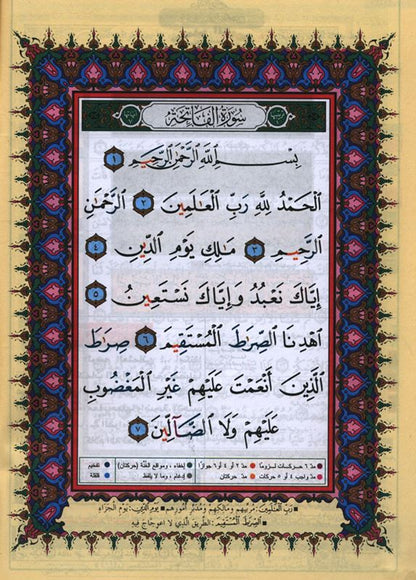 سُورَةُ الْفَاتِحَةِ
بِسْمِ اللَّهِ الرَّحْمَٰنِ الرَّحِيمِ ١
الْحَمْدُ لِلَّهِ رَبِّ الْعَالَمِينَ ٢ الرَّحْمَٰنِ
الرَّحِيمِ ٣ مَالِكِ يَوْمِ الدِّينِ ٤
إِيَّاكَ نَعْبُدُ وَإِيَّاكَ نَسْتَعِينُ ٥
اهْدِنَا الصِّرَاطَ الْمُسْتَقِيمَ ٦ صِرَاطَ
الَّذِينَ أَنْعَمْتَ عَلَيْهِمْ غَيْرِ الْمَغْضُوبِ
عَلَيْهِمْ وَلَا الضَّالِّينَ ٧
مدّ ٦ حركات لزوماً مدّ ٢ أو ٤ أو ٦ جوازاً إخفاء، ومواقع الغنّة (حركتان) تفخيم
مدّ واجب ٤ أو ٥ حركات مدّ حركتان إدغام، وما لا يلفظ قلقلة
رَبِّ الْعَالَمِينَ: مُرَبِّيهِم وَمَالِكِهِم وَمُدَبِّرِ أُمُورِهِم يَوْمِ الدِّينِ: يَوْمِ الْجَزَاءِ
الصِّرَاطَ الْمُسْتَقِيمَ: الطَّرِيقَ الَّذِي لَا اعْوِجَاجَ فِيهِ